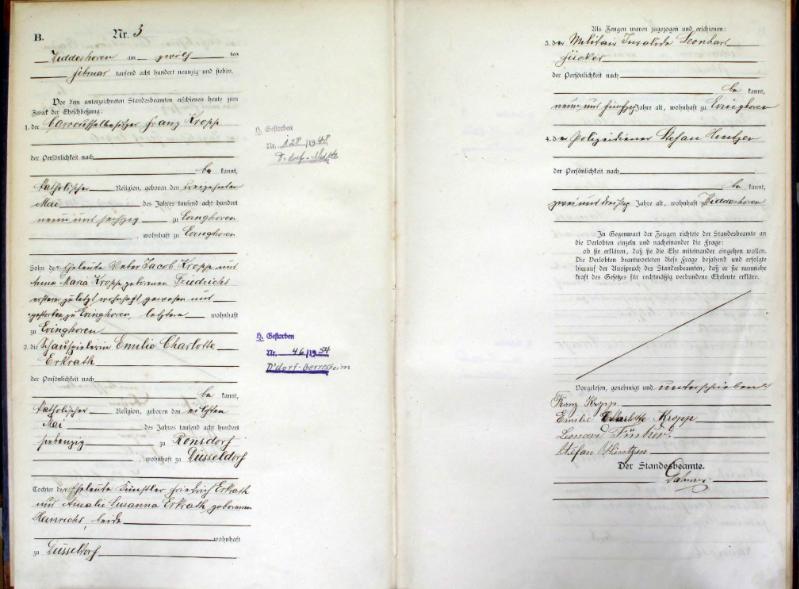 B.
Nr. 3
Hiddenhoven am zwölf ten
Februar tausend acht hundert neunzig und sieben.
Vor dem unterzeichneten Standesbeamten erschienen heute zum
Zweck der Eheschließung:
1. der Carrousselbesitzer Franz Kropp
der Persönlichkeit nach
be kannt,
katholischer Religion, geboren den
Mai des Jahres tausend acht hundert
neun und sechzig zu Evinghoven
, wohnhaft zu Evinghoven
Sohn der Eheleute Peter Jacob Kropp und
Anna Maria Kropp geborenen Friedrichs
ersterer zuletzt wohnhaft gewesen und
gestorben zu Evinghoven, letztere wohnhaft
zu Evinghoven
2. die Schauspielerin Emilie Charlotte
Erkrath
der Persönlichkeit nach
be kannt,
katholischer Religion, geboren den elften
Mai des Jahres tausend acht hundert
siebenzig zu Ronsdorf
wohnhaft zu Düsseldorf
Tochter der Eheleute Künstler Friedrich Erkrath
und Amalie Susanna Erkrath, geborenen
Heinrichs, beide
wohnhaft
zu Düsseldorf
H. Gestorben
Nr.
H. Gestorben
Nr. 46/1954
D'dorf-Gerresheim
Als Zeugen waren zugezogen und erschienen:
3. der Militair Invalide Leonhard
der Persönlichkeit nach
be kannt,
neun und fünfzig Jahre alt, wohnhaft zu Evinghoven
4. der Polizeidiener Stefan Hintzen
der Persönlichkeit nach
be kannt,
zwei und dreißig Jahre alt, wohnhaft Hiddenhoven
In Gegenwart der Zeugen richtete der Standesbeamte an
die Verlobten einzeln und nacheinander die Frage:
ob sie erklären, daß sie die Ehe miteinander eingehen wollen.
Die Verlobten beantworteten diese Frage bejahend und erfolgte
hierauf der Ausspruch des Standesbeamten, daß er sie nunmehr
kraft des Gesetzes für rechtmäßig verbundene Eheleute erkläre.
Vorgelesen, genehmigt und unterschrieben
Franz Kropp
Emilie Charlotte Kropp
Leonard
Stefan Hintzen
Der Standesbeamte.